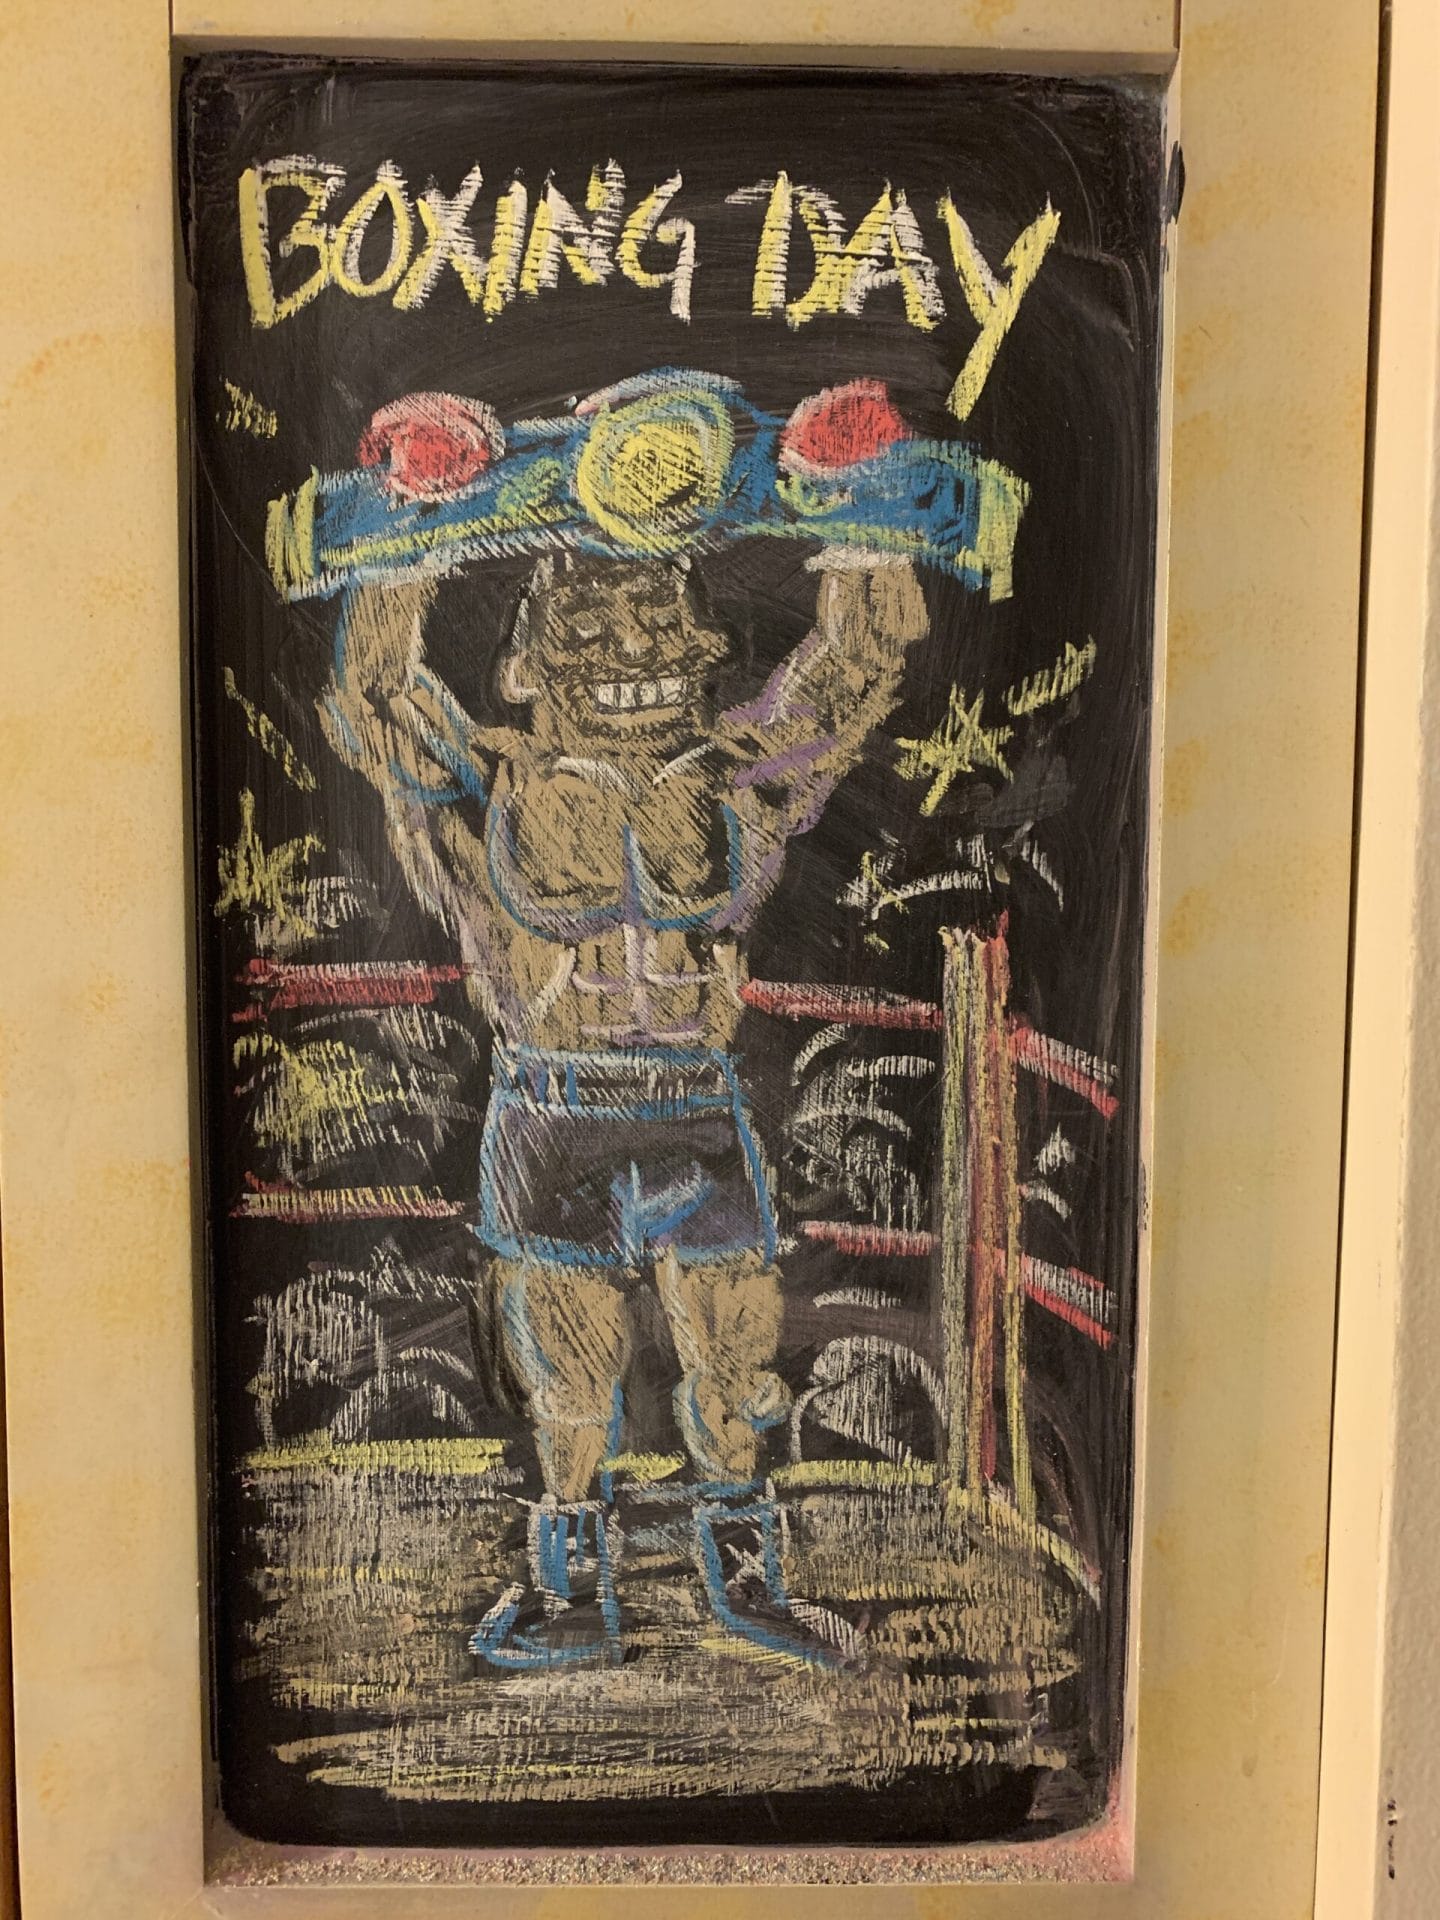 BOXING DAY